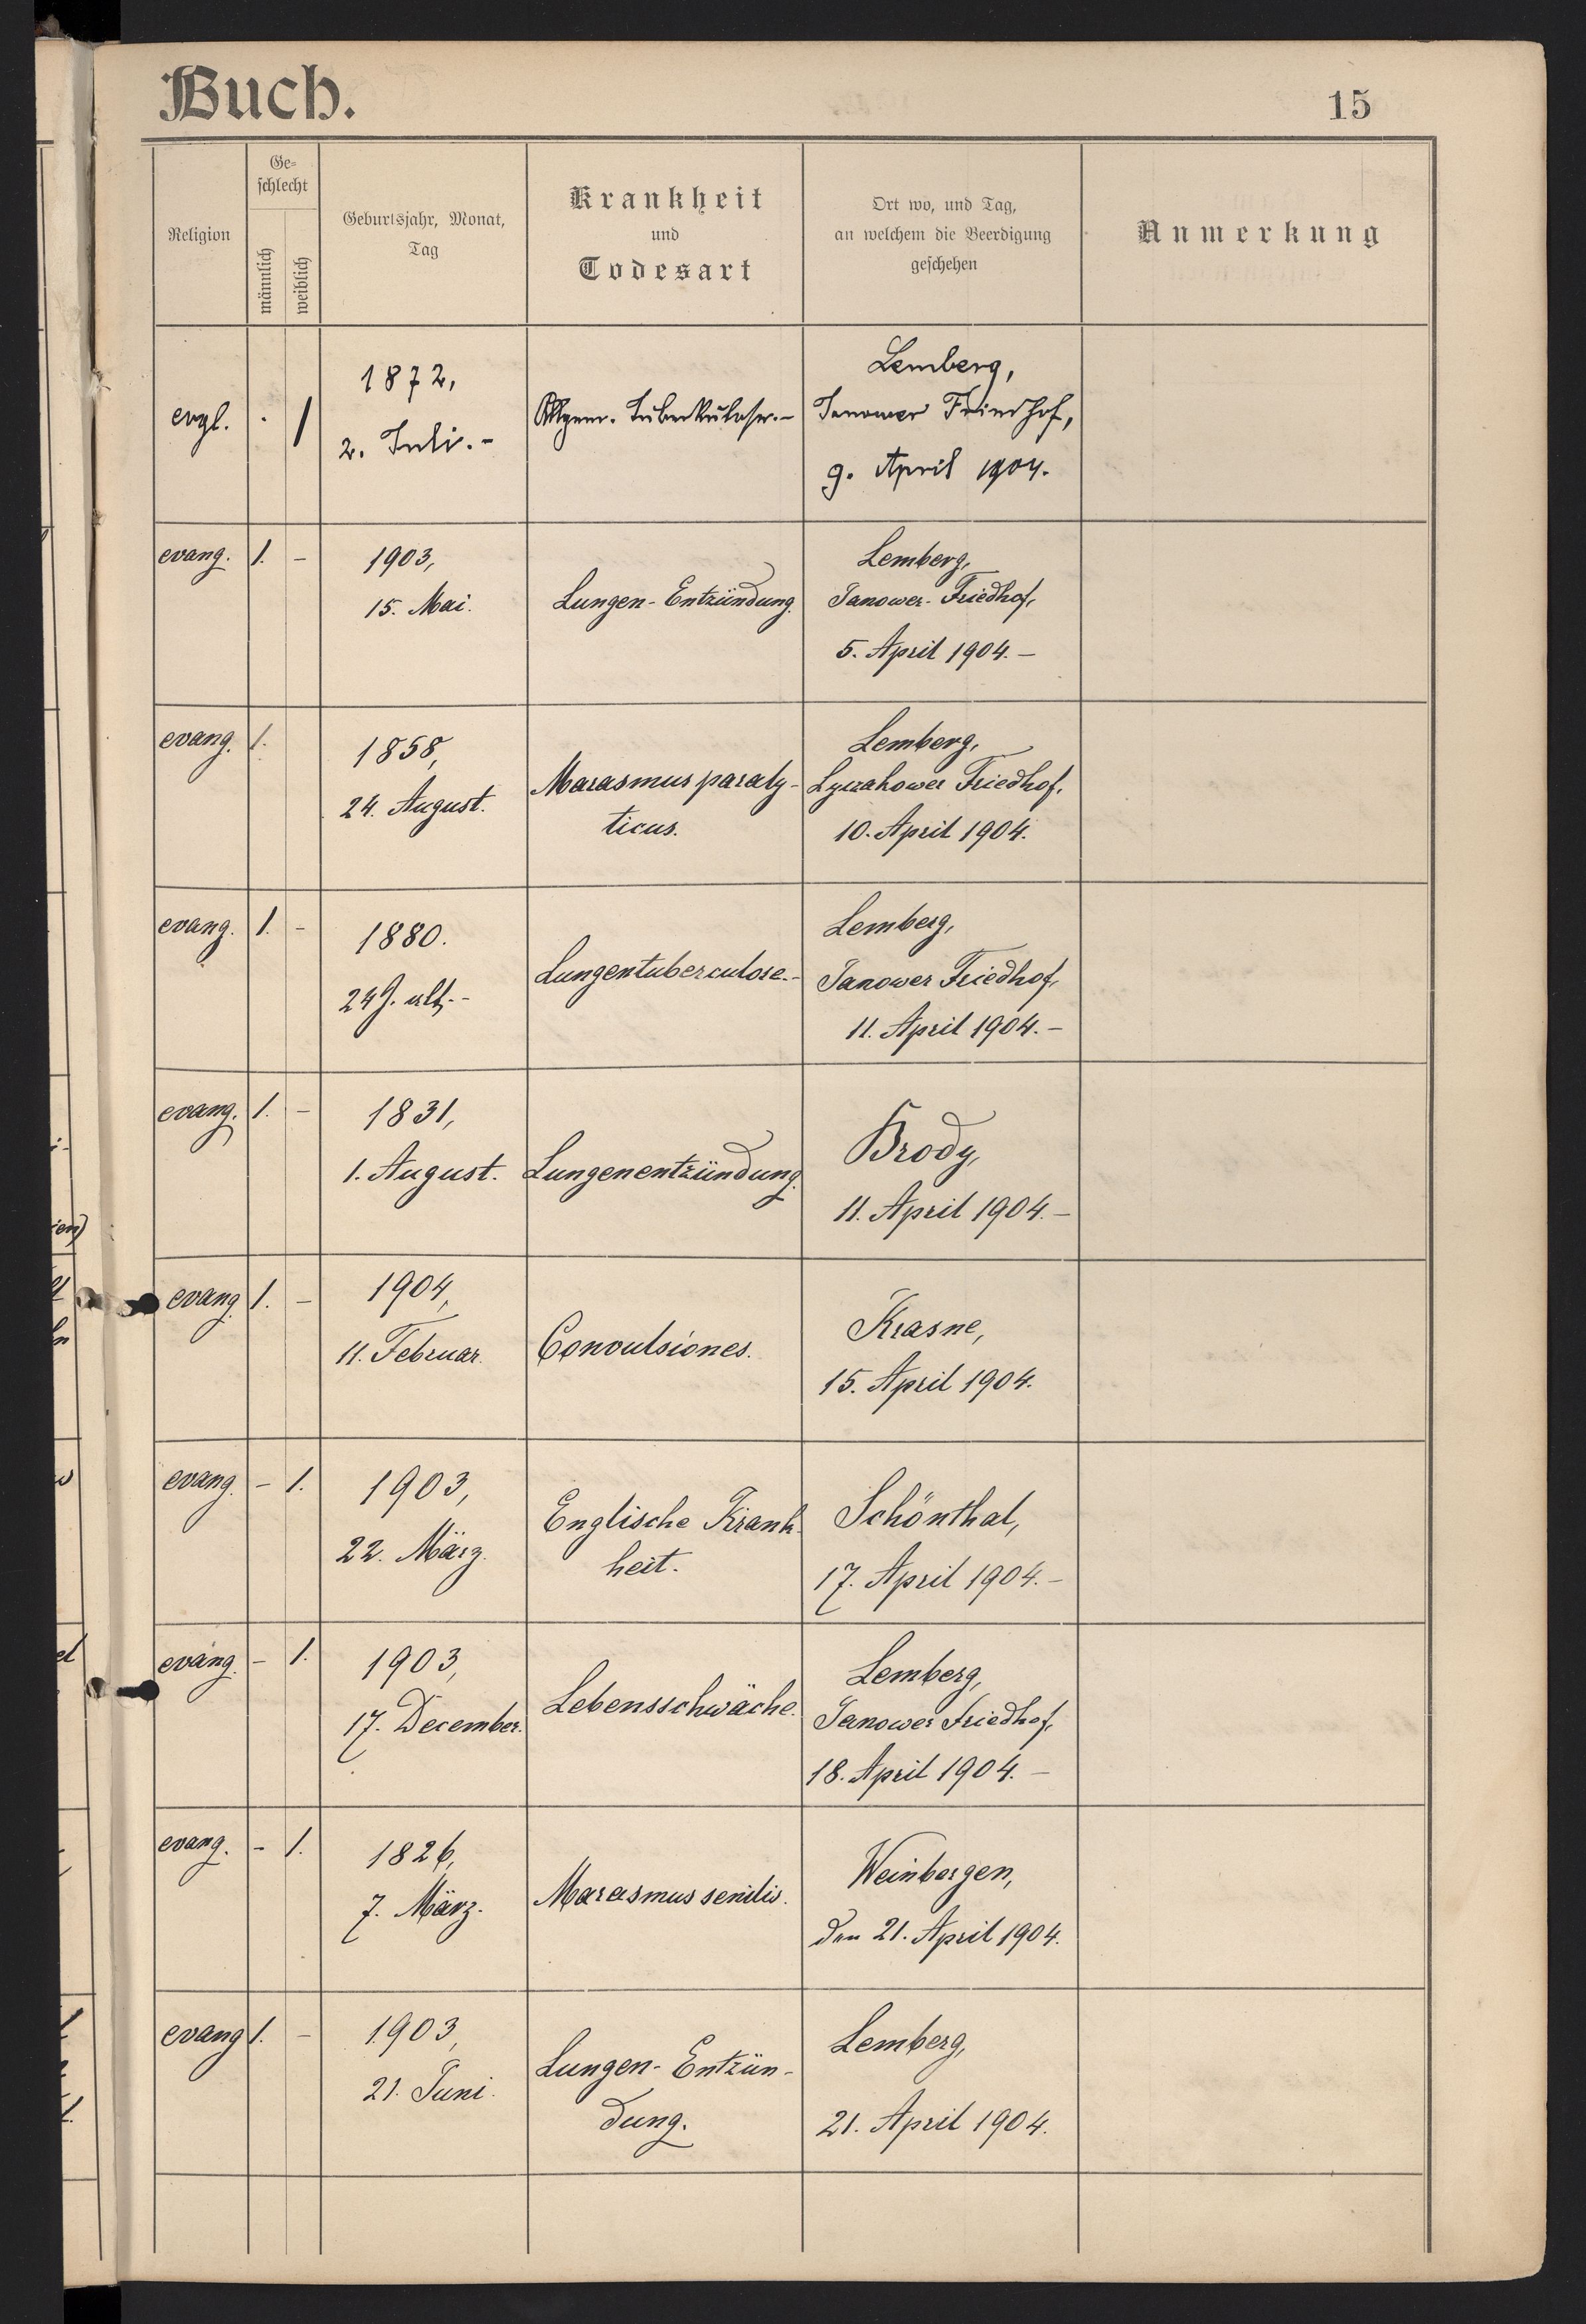 Buch.
15
Religion
Ge-
schlecht
männlich
weiblich
Geburtsjahr, Monat,
Tag
Krankheit
und
Todesart
Ort wo, und Tag,
an welchem die Beerdigung
geschehen
Anmerkung
evgl. . 1
1872,
2. Juli. -
Allgem. Tuberkulose. -
Lemberg,
Janower Friedhof,
9. April 1904.
evang. 1. -
1903,
15. Mai.
Lungen-Entzündung.
Lemberg,
Janower-Friedhof,
5. April 1904. -
evang. 1.
1858,
24. August.
Marasmus paraly-
ticus.
Lemberg,
Lyczakower Friedhof.
10. April 1904.
evang. 1. -
1880.
24 J. alt. -
Lungentuberculose. -
Lemberg,
Janower Friedhof,
11. April 1904. -
evang. 1. -
1831,
1. August.
Lungenentzündung.
Brody,
11. April 1904. -
evang. 1. -
1904,
11. Februar.
Convulsiones.
Krasne,
15. April 1904.
evang. - 1.
1903,
22. März.
Englische Krank-
heit.
Schönthal,
17. April 1904. -
evang. - 1.
1903,
17. December.
Lebensschwäche.
Lemberg,
Janower Friedhof,
18. April 1904. -
evang. - 1.
1826,
7. März.
Marasmus senilis.
Weinbergen,
den 21. April 1904.
evang 1. -
1903,
21. Juni.
Lungen-Entzün-
dung.
Lemberg,
21. April 1904.